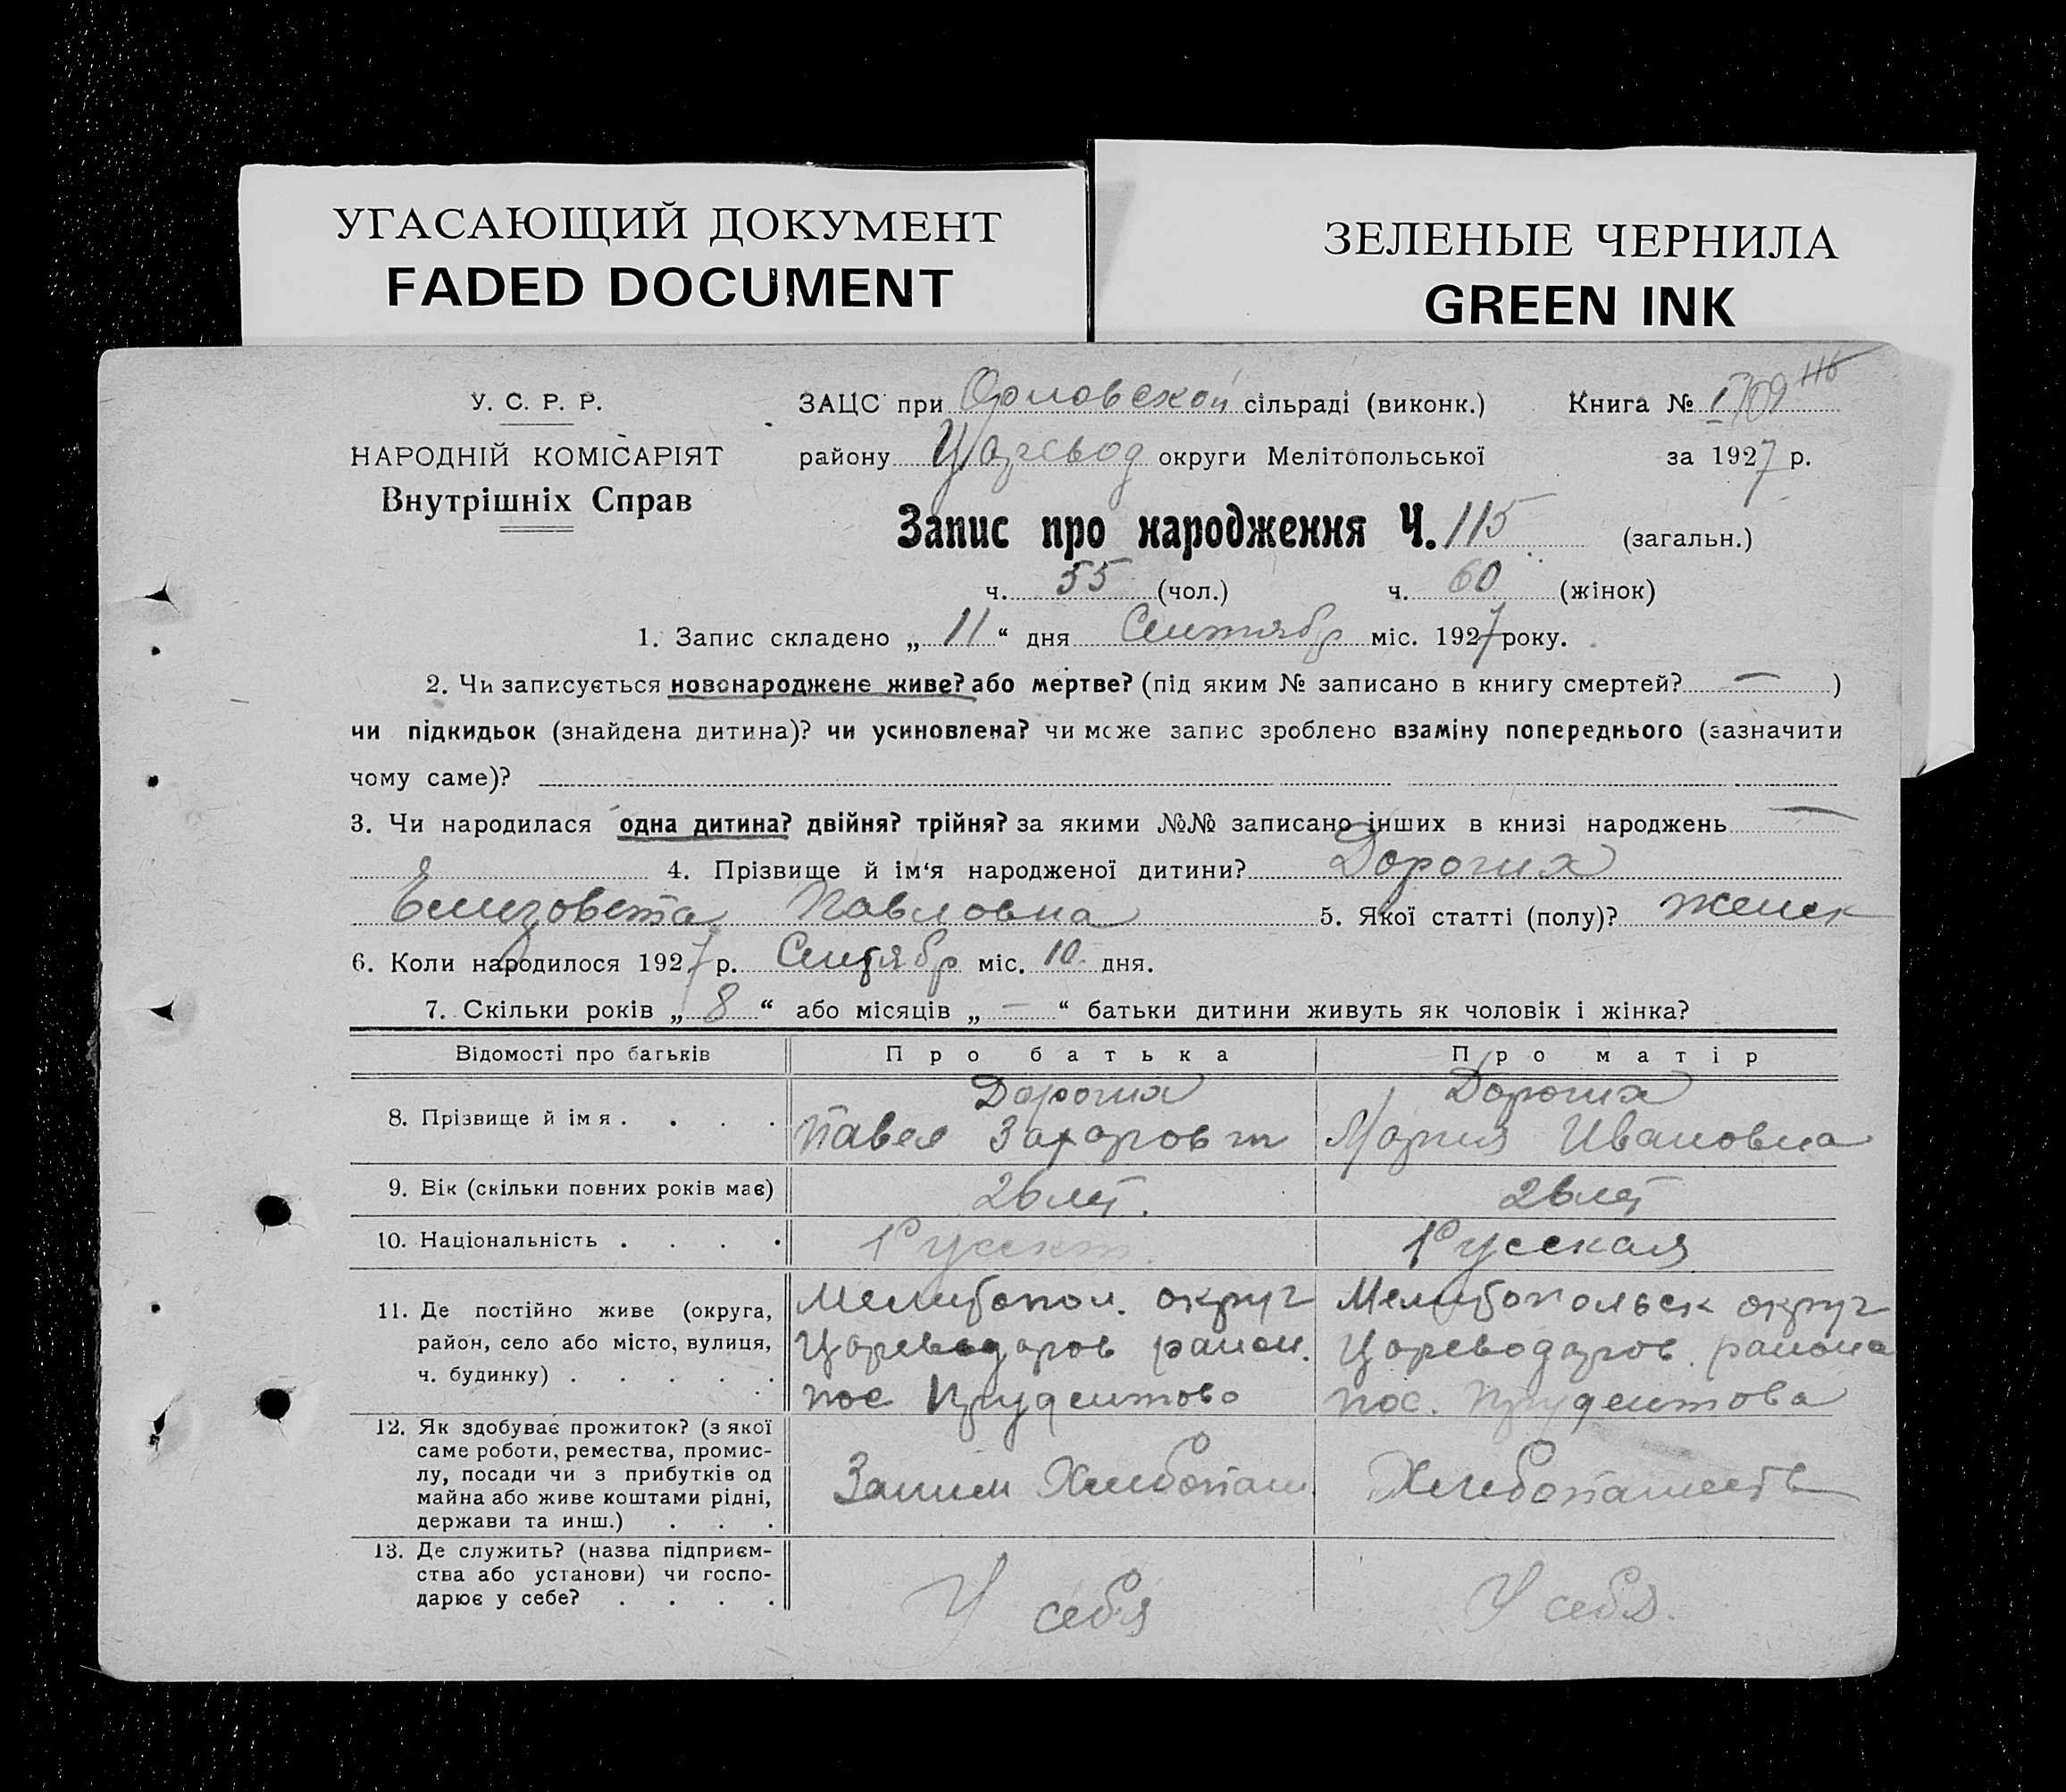 УГАСАЮЩИЙ ДОКУМЕНТ
FADED DOCUMENT
ЗЕЛЕНЫЕ ЧЕРНИЛА
GREEN INK
У. С. Р. Р.
НАРОДНІЙ КОМІСАРІЯТ
Внутрішніх Справ
ЗАЦС при Орловской сільраді (виконк.) Книга № 116
району Царевод округи Мелітопольської за 1927 р.
Запис про народження Ч. 115 (загальн.)
ч. 55 (чол.) ч. 60 (жінок)
1. Запис складено „ 11 “ дня Сентябр міс. 1927 року.
2. Чи записується новонароджене живе? або мертве? (під яким № записано в книгу смертей? — )
чи підкидьок (знайдена дитина)? чи усиновлена? чи може запис зроблено взаміну попереднього (зазначити
чому саме)?
3. Чи народилася одна дитина? двійня? трійня? за якими №№ записано інших в книзі народжень —
4. Прізвище й ім‘я народженої дитини? Дорогих
Елизовета Павловна 5. Якої статті (полу)? женск
6. Коли народилося 1927 р. Сентябр міс. 10 дня.
7. Скільки років „ 8 “ або місяців „ — “ батьки дитини живуть як чоловік і жінка?
Відомості про батьків Про батька Про матір
8. Прізвище й ім я . . . . Дорогих Дорогих
Павел Захаров Мария Ивановна
9. Вік (скільки повних років має) 26 лет. 26 лет
10. Національність . . . . Русск Русская
11. Де постійно живе (округа, Мелитопол. округ Мелитопольск округ
район, село або місто, вулиця, Цареводаров район. Цареводаров. района
ч. будинку) . . . . . пос Прудентово пос. Прудентова
12. Як здобуває прожиток? (з якої
саме роботи, ремества, промис-
лу, посади чи з прибутків од
майна або живе коштами рідні,
держави та инш.) . . . Хлебопаш Хлебопашеств
13. Де служить? (назва підприєм-
ства або установи) чи госпо-
дарює у себе? . . . . У себя У себя.